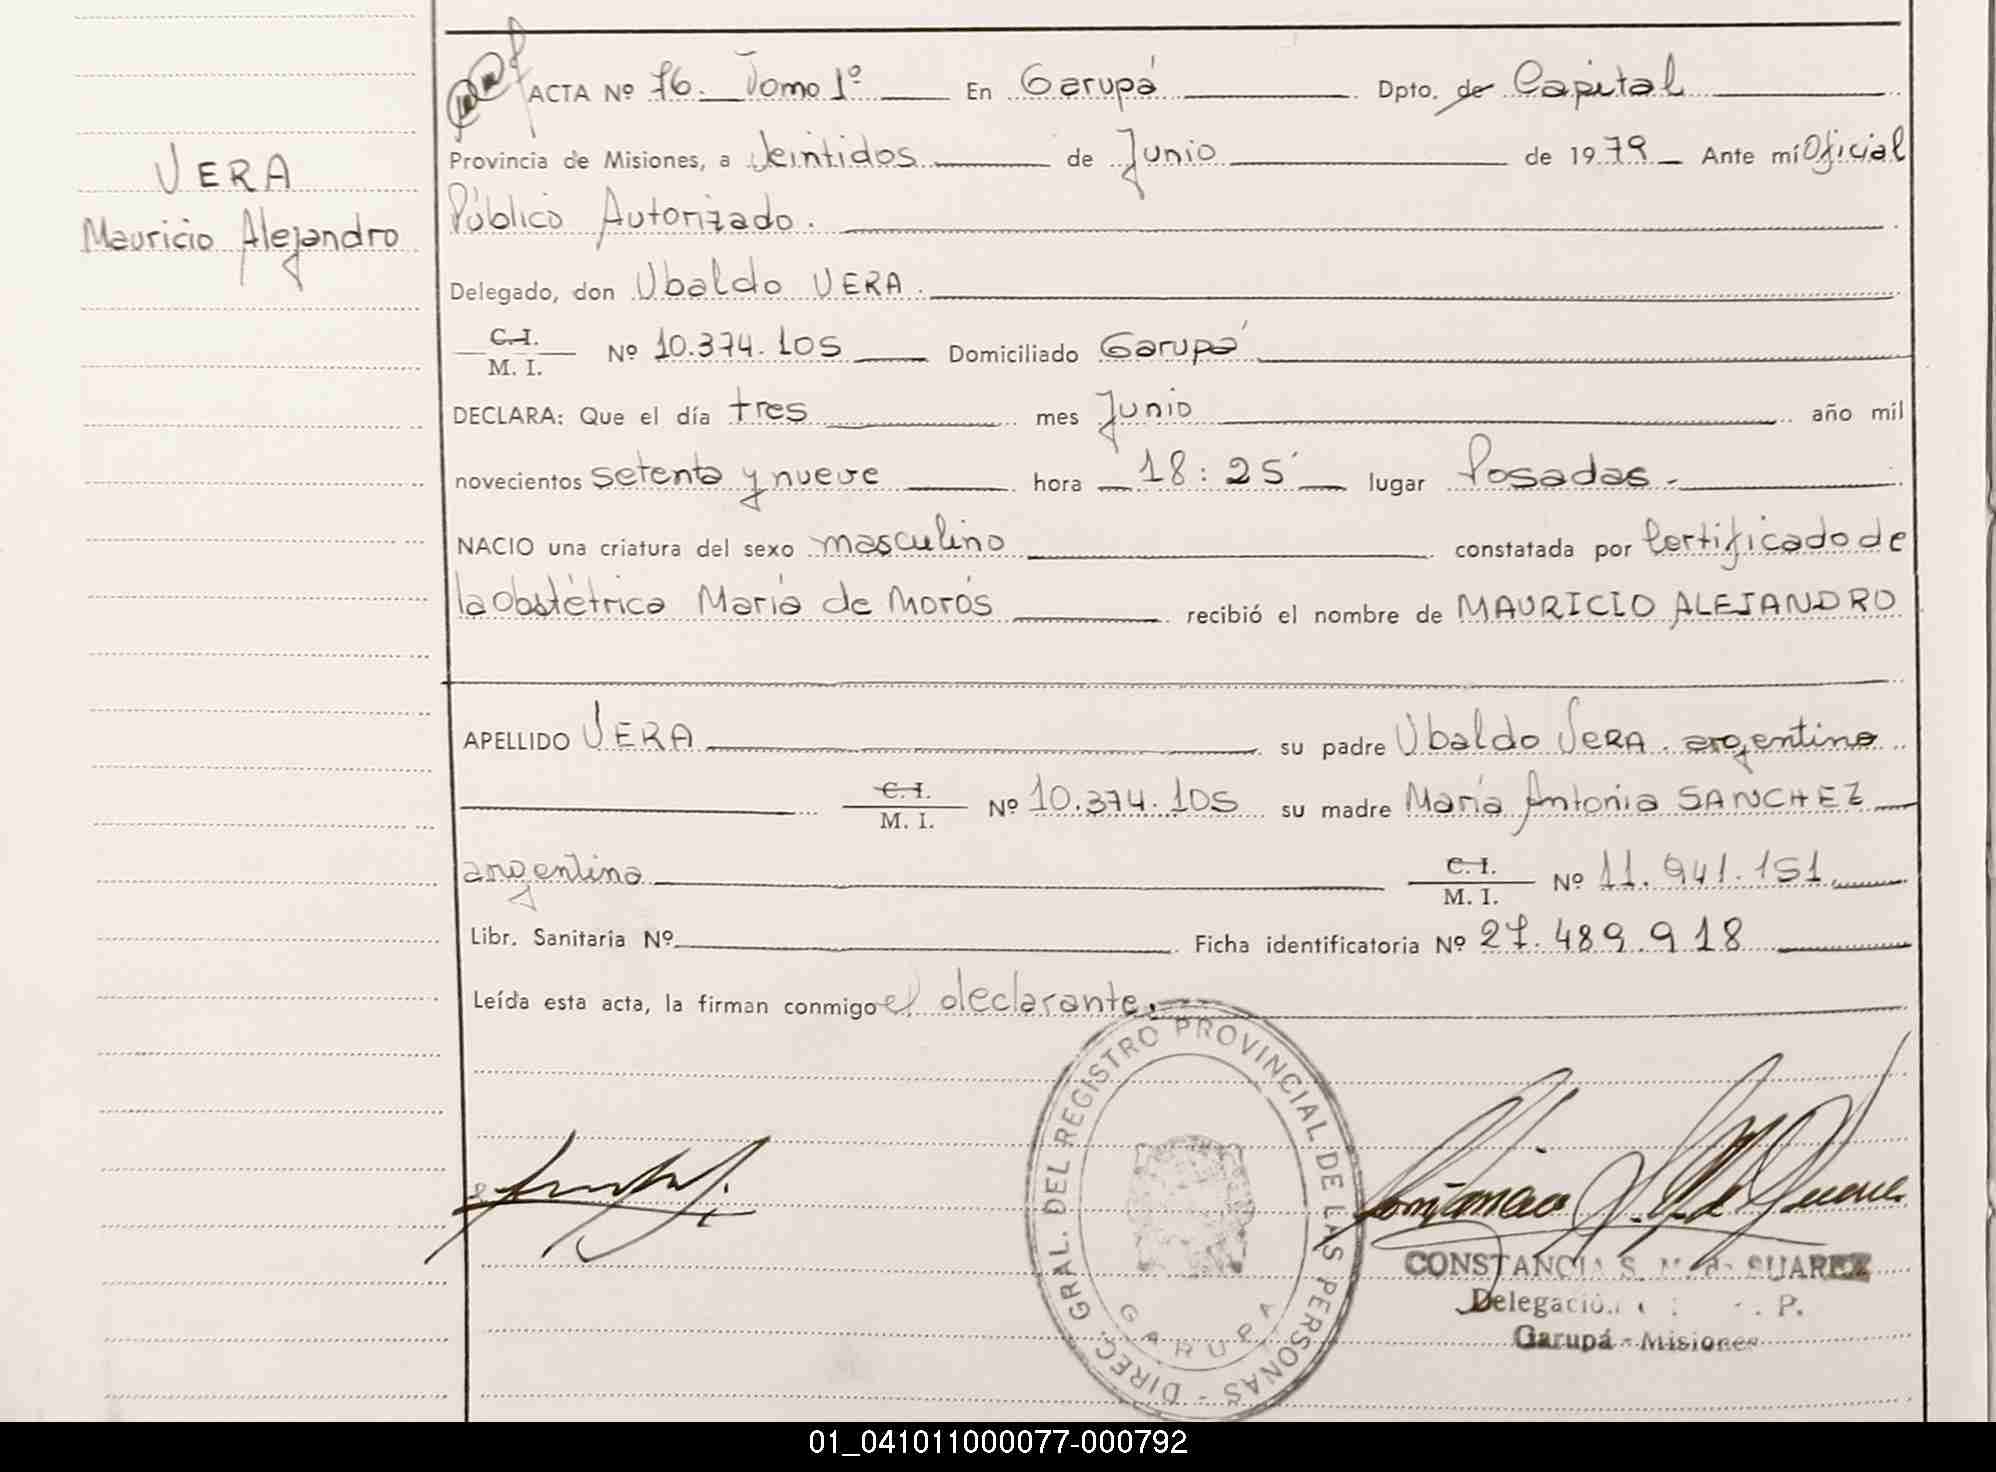 VERA
Mauricio Alejandro
ACTA Nº 76. Tomo 1º En Garupá Dpto. de Capital
Provincia de Misiones, a Veintidos de Junio de 1979 Ante mí Oficial
Público Autorizado.
Delegado, don Ubaldo VERA.
C.I.
M. I. Nº 10.374.105 Domiciliado Garupá
DECLARA: Que el día tres mes Junio año mil
novecientos setenta y nueve hora 18:25' lugar Posadas.-
NACIO una criatura del sexo masculino constatada por Certificado de
la Obstétrica María de Morós recibió el nombre de MAURICIO ALEJANDRO
APELLIDO VERA su padre Ubaldo VERA. argentino
C.I.
M. I. Nº 10.374.105 su madre María Antonia SANCHEZ
argentina C.I.
M. I. Nº 11.941.151
Libr. Sanitaria Nº Ficha identificatoria Nº 27.489.918
Leída esta acta, la firman conmigo el declarante.
DIREC. GRAL. DEL REGISTRO PROVINCIAL DE LAS PERSONAS -
GARUPA
CONSTANCIA S. de SUAREZ
Delegación P.
Garupá - Misiones
01_041011000077-000792